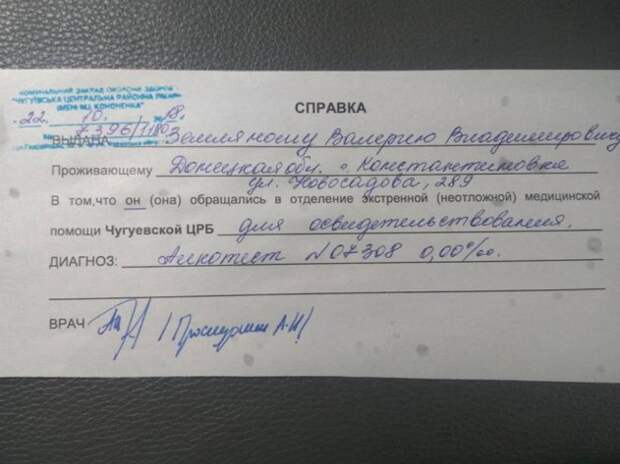 КОМУНАЛЬНИЙ ЗАКЛАД ОХОРОНИ ЗДОРОВ'Я
"ЧУГУЇВСЬКА ЦЕНТРАЛЬНА РАЙОННА ЛІКАРНЯ
ІМЕНІ М.І. КОНОНЕНКА"
22. 10. 18.
СПРАВКА
ВЫДАНА Земляному Валерию Владимировичу
Проживающему Донецкая обл. г. Константиновка
ул. Новосадова, 289
В том,что он (она) обращались в отделение экстренной (неотложной) медицинской
помощи Чугуевской ЦРБ для освидетельствования.
ДИАГНОЗ: Алкотест №07308 0,00‰.
ВРАЧ